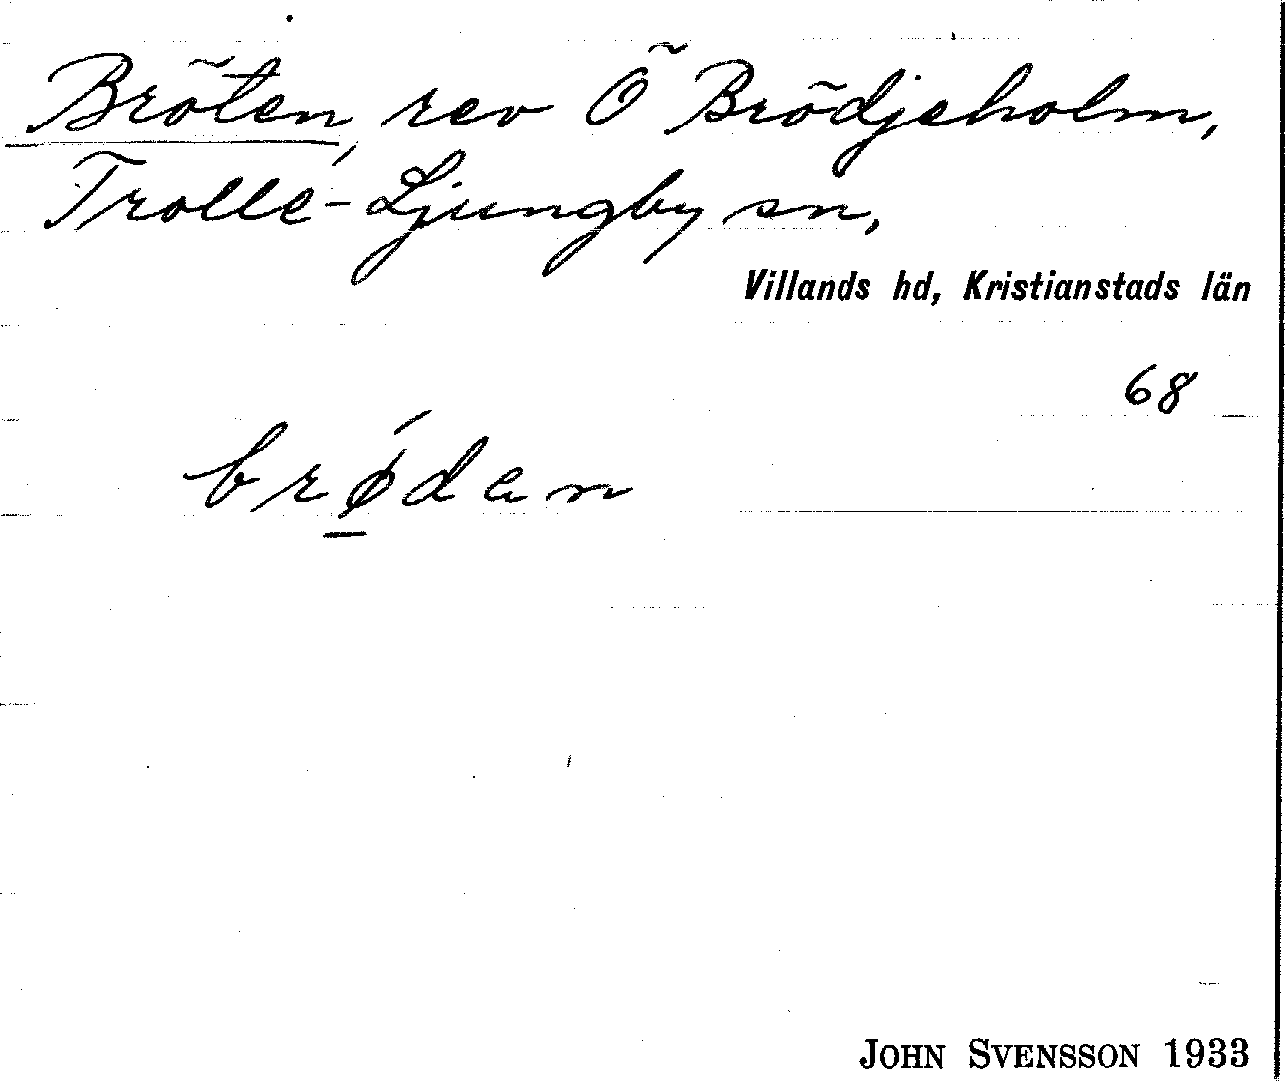 Bröten, rev Ö Brödjeholm,
Trolle-Ljungby sn,
Villands hd, Kristianstads län
68
brǿ̲dan
JOHN SVENSSON 1933